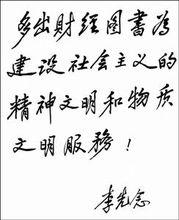 多出財经图書為
建设社会主义的
精神文明和物质
文明服務！
李先念